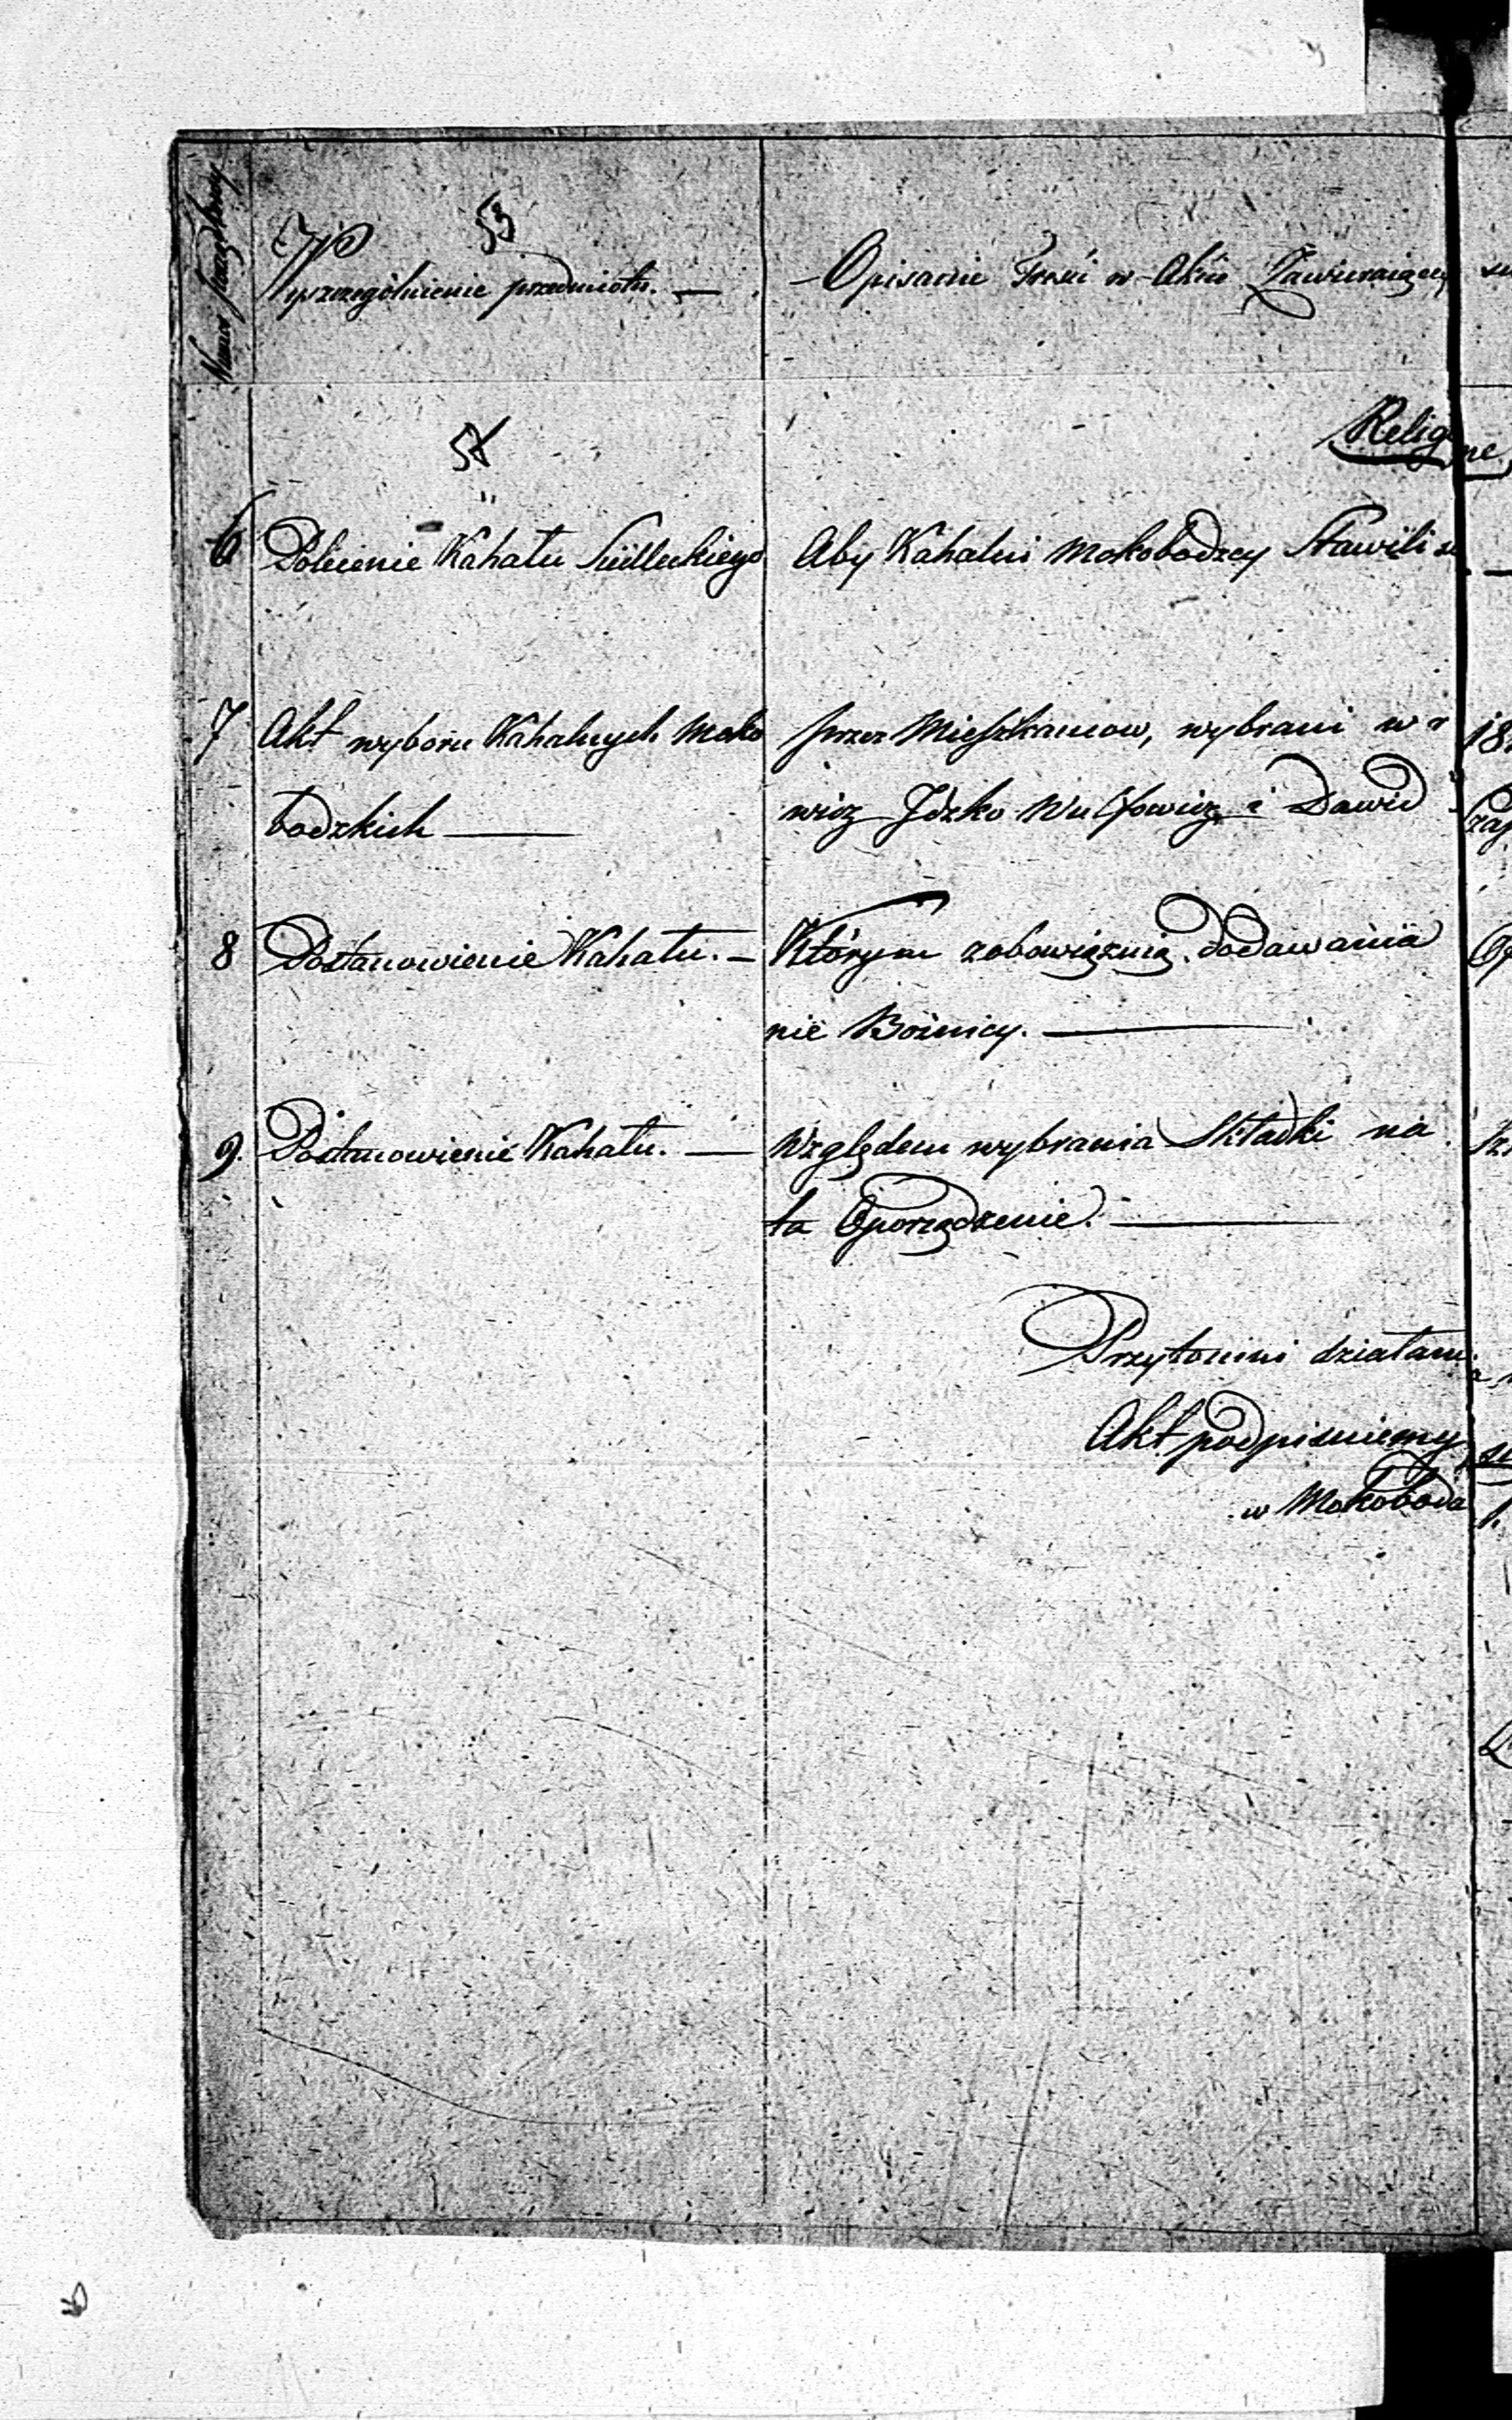 53
Wyszczegolnienie przedmiotu. —
Opisanie Treści w Akcie Zawieraiącey
Religi
ne
6 Polecenie Kahału Siedleckiego
Aby Kahalni Mokobodzcy Stawili
7 Akt wyboru Kahalnych Moko
bodzkich —
przez Mieszkancow, wybrani w
wicz Jdzko Wulfowicz i Dawid
8 Postanowienie Kahału. —
Którym zobowiązuią dodawania
nie Bożnicy. —
9. Postanowienie Kahału. —
Względem wybrania Składki na
ta Oporządzenie. —
Przytomni działani
Akt podpisuiemy
w Mokoboda